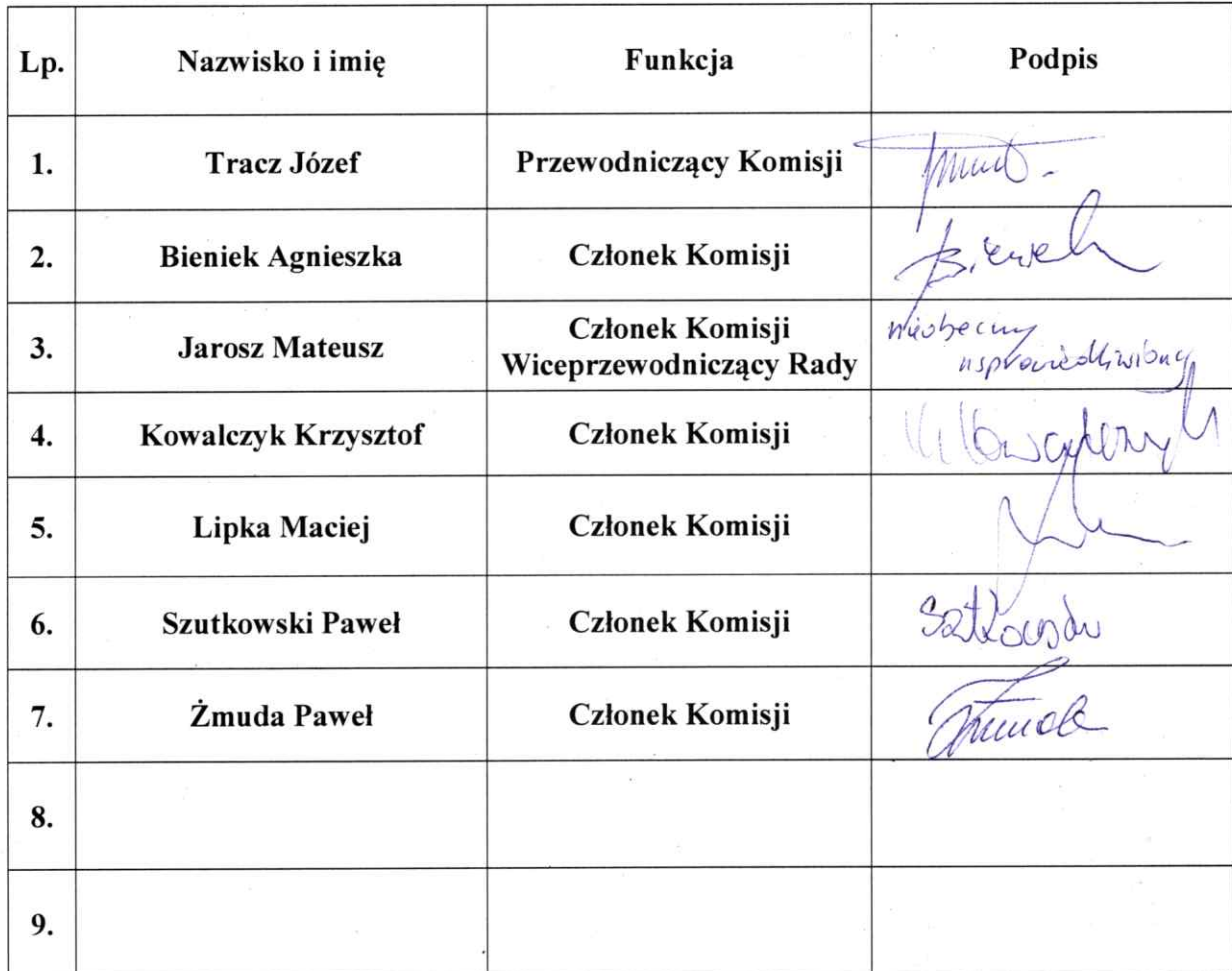 Lp. Nazwisko i imię Funkcja Podpis
1. Tracz Józef Przewodniczący Komisji
2. Bieniek Agnieszka Członek Komisji Bieniek
3. Jarosz Mateusz Członek Komisji
Wiceprzewodniczący Rady
nieobecny
usprawiedliwiony
4. Kowalczyk Krzysztof Członek Komisji Kowalczyk
5. Lipka Maciej Członek Komisji
6. Szutkowski Paweł Członek Komisji
7. Żmuda Paweł Członek Komisji Żmuda
8.
9.